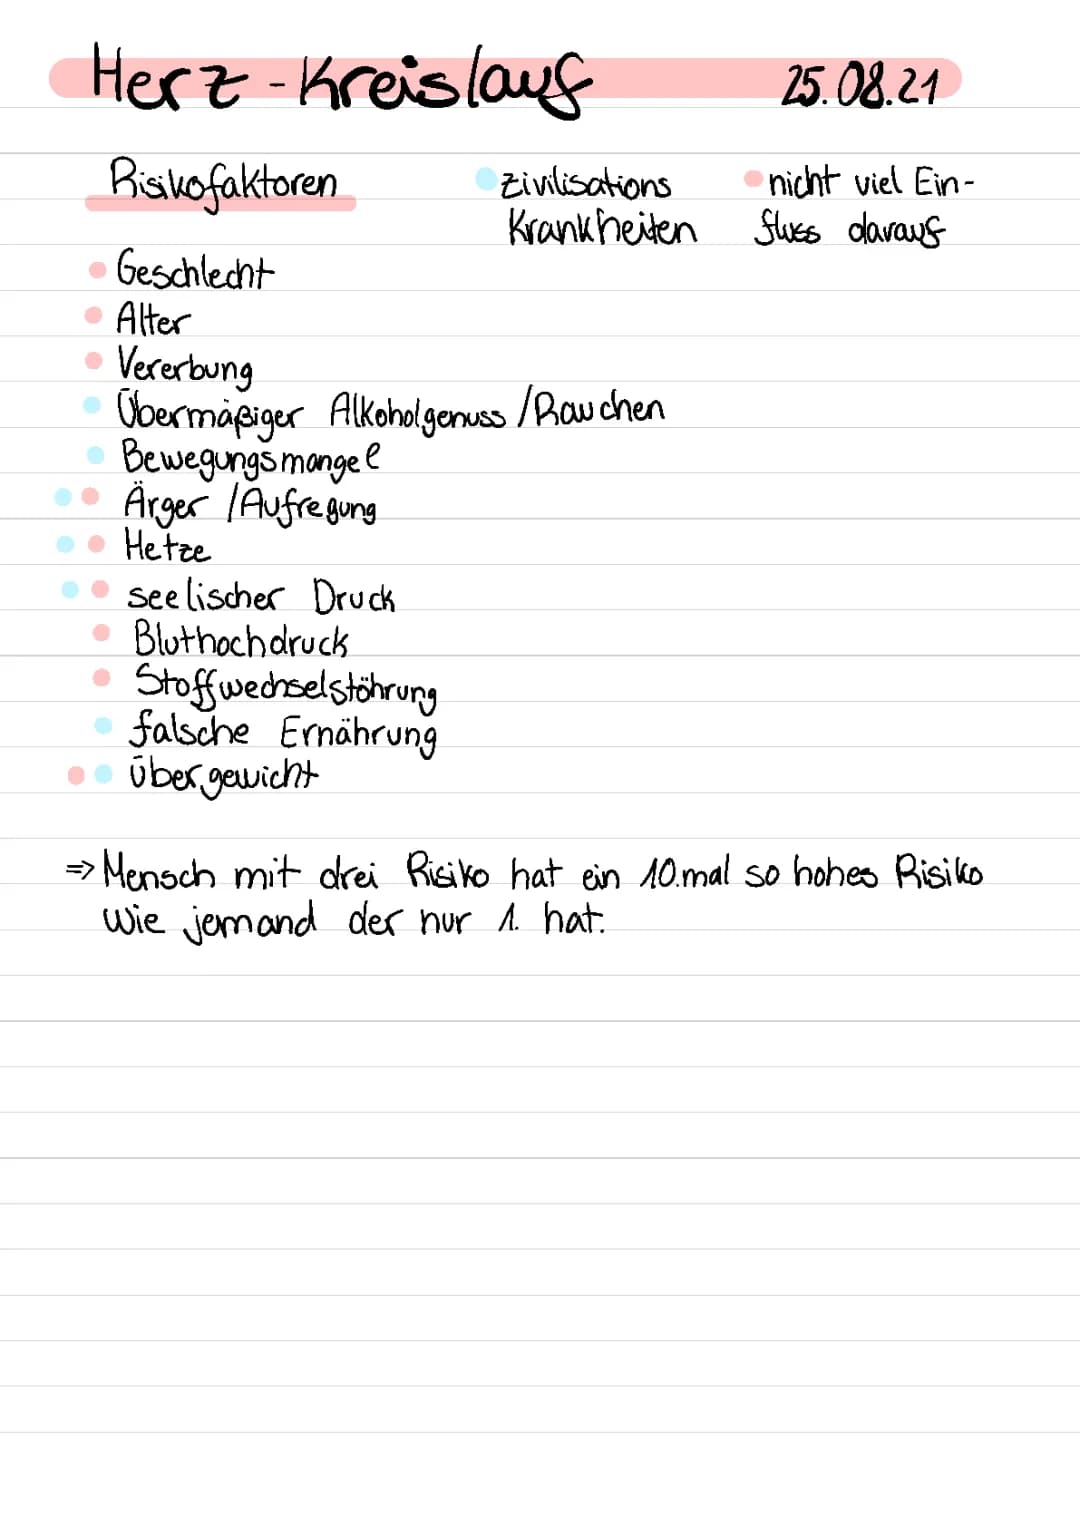 Herz-Kreislauf 25.08.21
Risikofaktoren
Zivilisations
Krankheiten
nicht viel Ein-
fluss darauf
Geschlecht
Alter
Vererbung
Übermäßiger Alkoholgenuss /Rauchen
Bewegungsmangel
Ärger /Aufregung
Hetze
seelischer Druck
Bluthochdruck
Stoffwechselstöhrung
falsche Ernährung
Übergewicht
⇒ Mensch mit drei Risiko hat ein 10.mal so hohes Risiko
wie jemand der nur 1. hat.